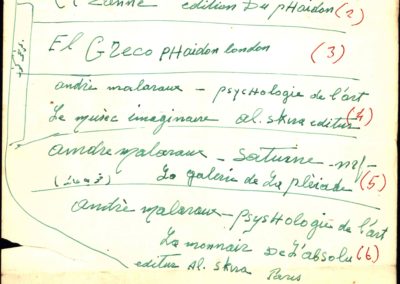 Cézanne edition Du pHaidon (2)
El Greco pHaidon london (3)
andré malaraux – psycHologie de l'art
Le music imaginaire al. skira editur (4)
andre malaraux – saturne – nrf
La galerie de La plèiade (5)
andrè malaraux – psysHologie de l'art
La monnair De L'absolu (6)
editur Al. Skira Paris